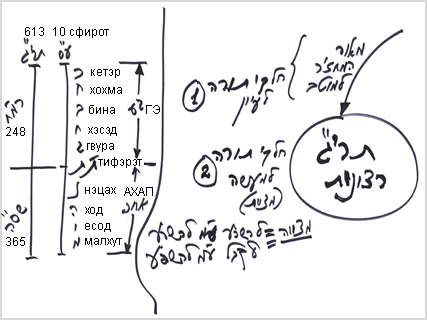 613 10 сфирот
תרי"ג ע"ס
כ кетэр
ח хохма
ב бина
ГЭ
רמ"ח
248
ח хэсэд
ג гвура
ת тифэрэт
נ нэцах
АХАП
אח"פ
ה ход
י есод
מ малхут
שס"ה
365
מאור
המחזיר
למוטב
1 חלקי תורה
לעיון
תרי"ג
רצונות
2 חלקי תורה
למעשה
(מצוות)
מצווה = להשפיע ע"מ להשפיע
לקבל ע"מ להשפיע